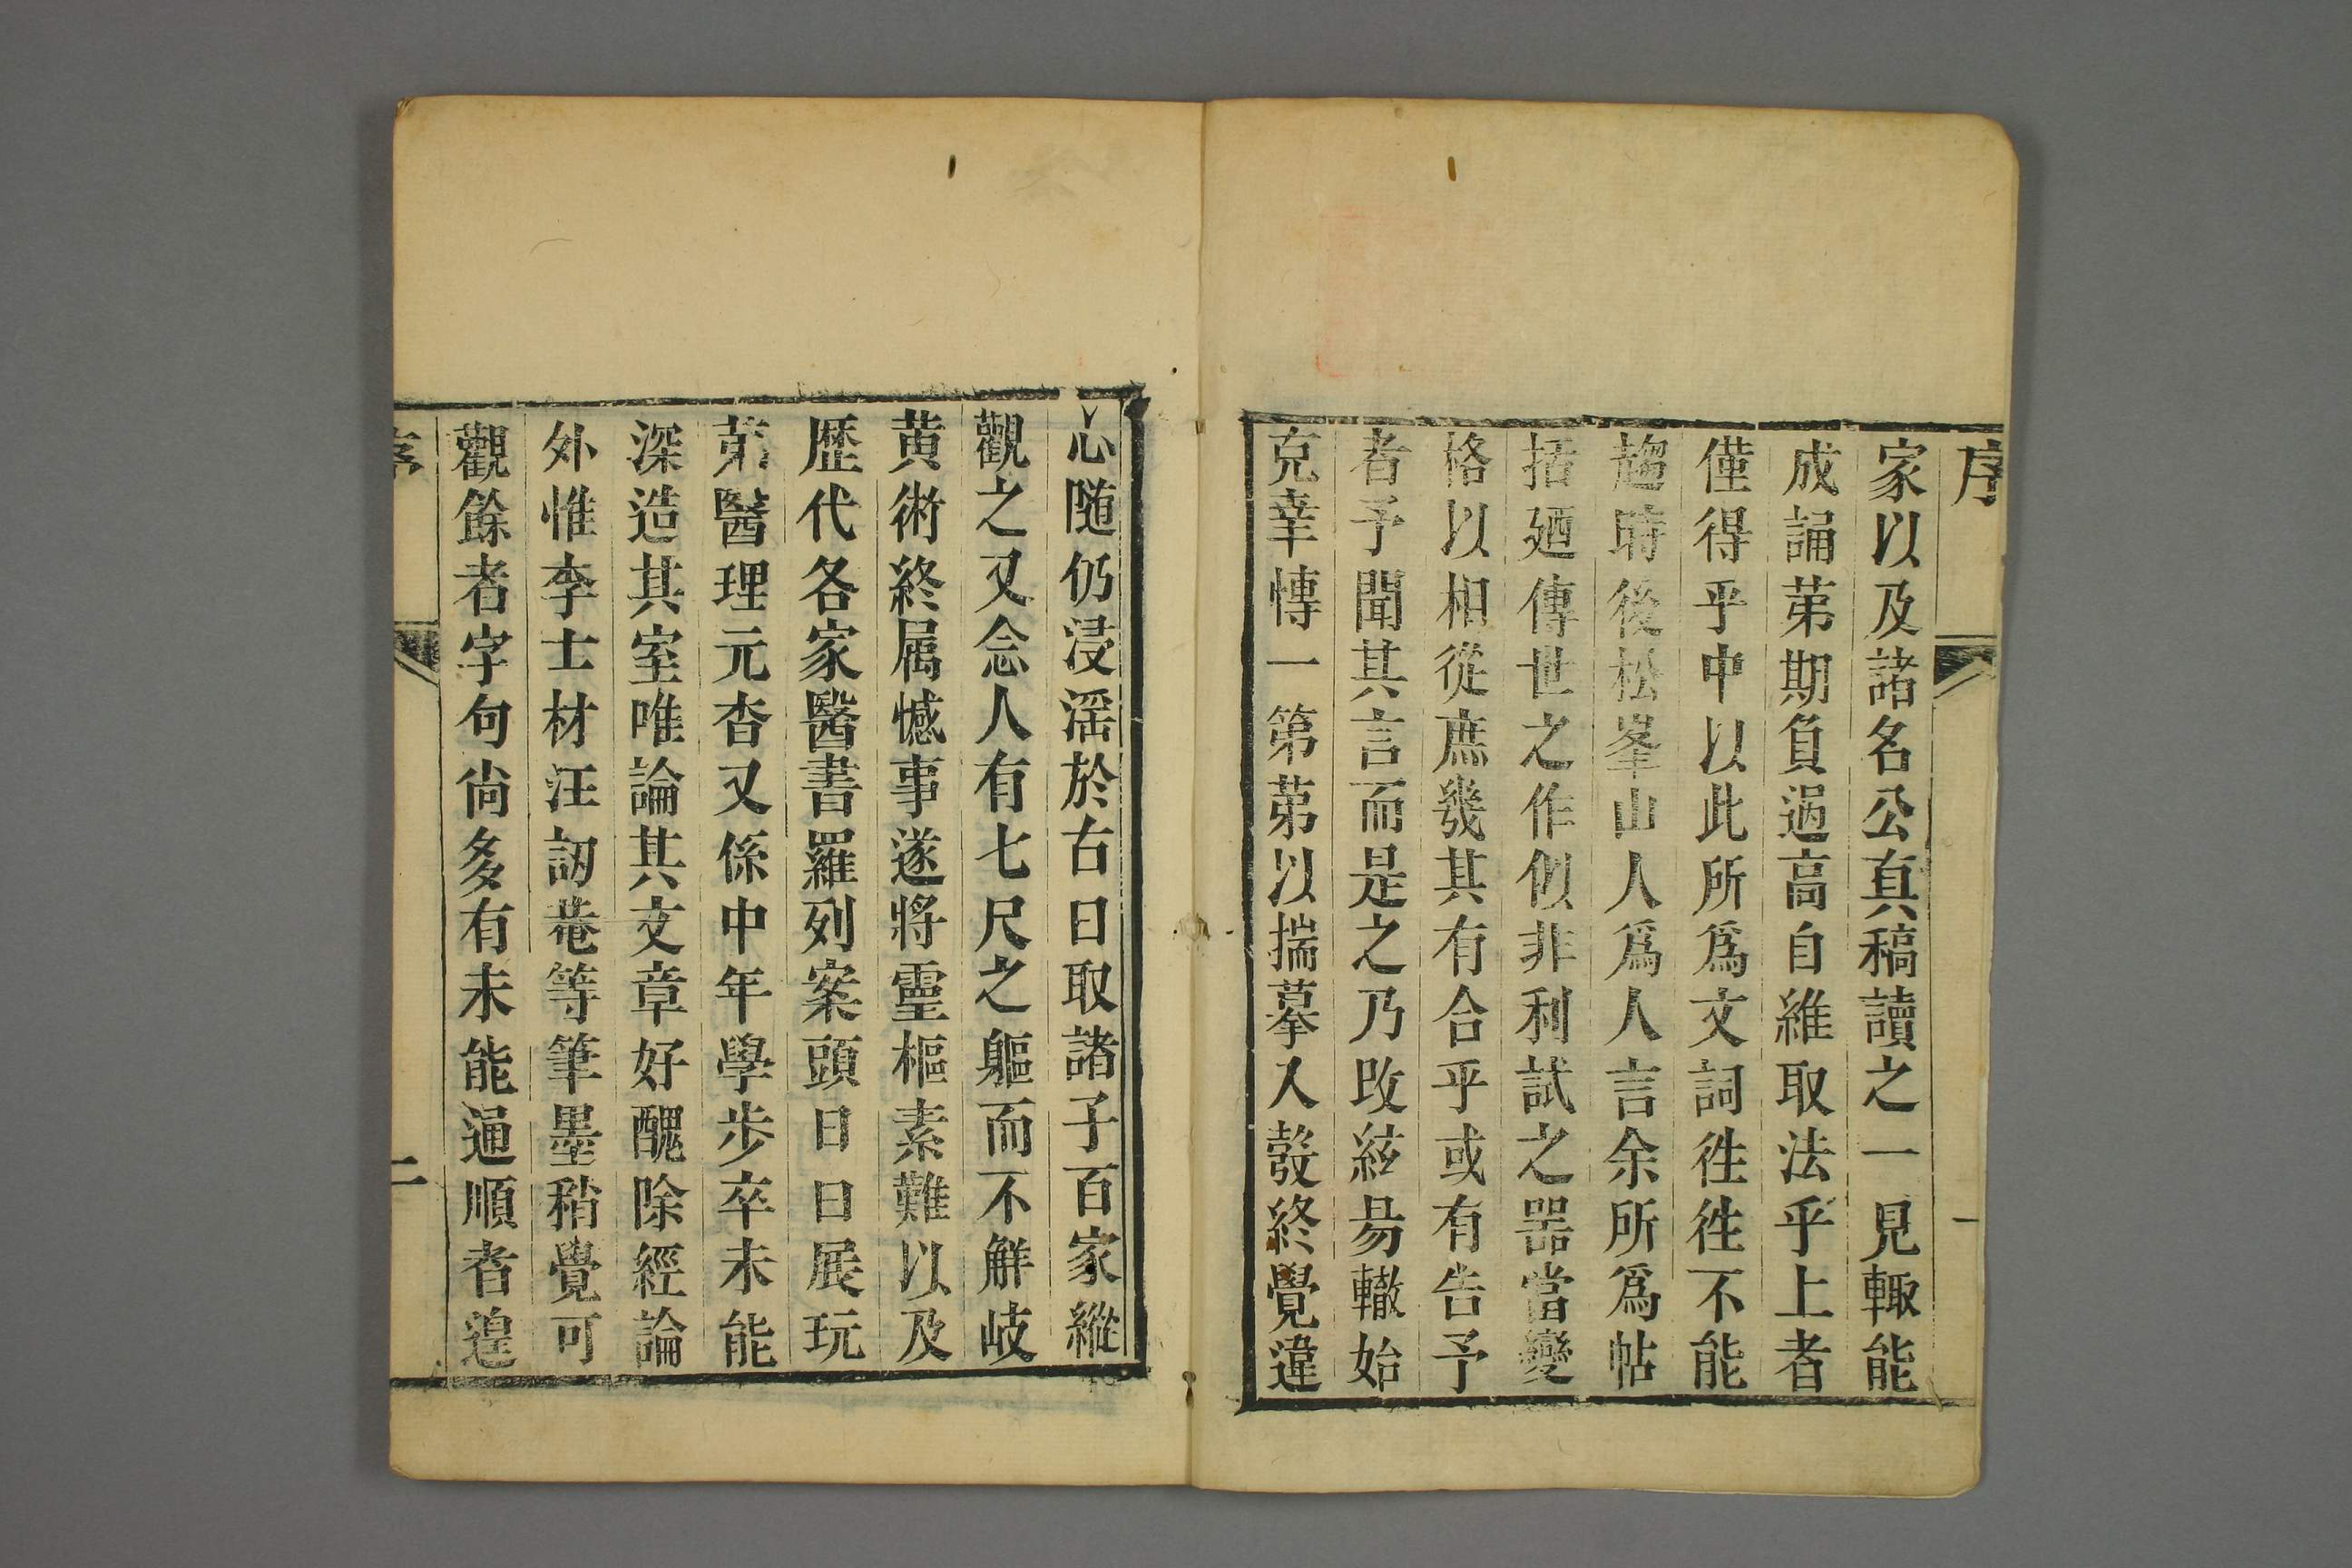 序
一
家以及諸名公真稿讀之一見輙能
成誦苐期負過高自維取法乎上者
僅得乎中以此所爲文詞徃徃不能
趨時後松峯山人爲人言余所爲帖
括廼傳世之作似非利試之噐當變
格以相從庶幾其有合乎或有告予
者予聞其言而是之乃改絃昜轍始
克幸慱一第苐以揣摹入彀終覺違
心随仍浸滛於古日取諸子百家縱
觀之又念人有七尺之軀而不觧岐
黄術終属憾事遂將靈樞素難以及
歷代各家醫書羅列案頭日日展玩
苐醫理元杳又係中年學步卒未能
深造其室唯論其文章好醜除經論
外惟李士材汪訒菴等筆墨稍覺可
觀餘者字句尙多有未能通順者遑
序
二